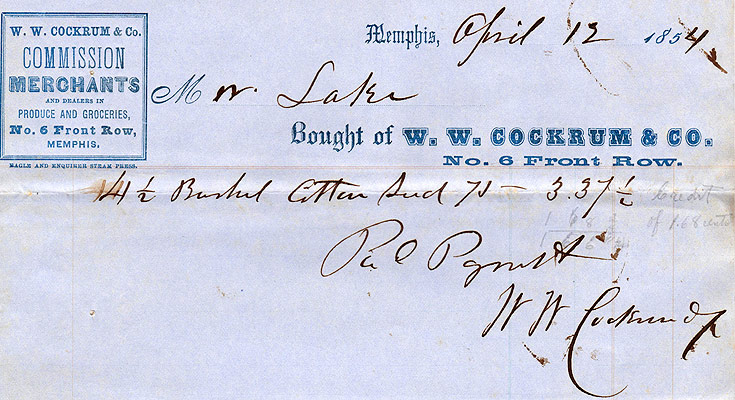 W. W. COCKRUM & Co.
COMMISSION
MERCHANTS
AND DEALERS IN
PRODUCE AND GROCERIES,
No. 6 Front Row,
MEMPHIS.
EAGLE AND ENQUIRER STEAM PRESS.
Memphis, April 12 1854
Mr. Lake
Bought of W. W. COCKRUM & CO.
No. 6 Front Row.
4½ Bushel Cotton Seed 75 - 3.37½
Credit
of 1.68 cents
W W Cockrum